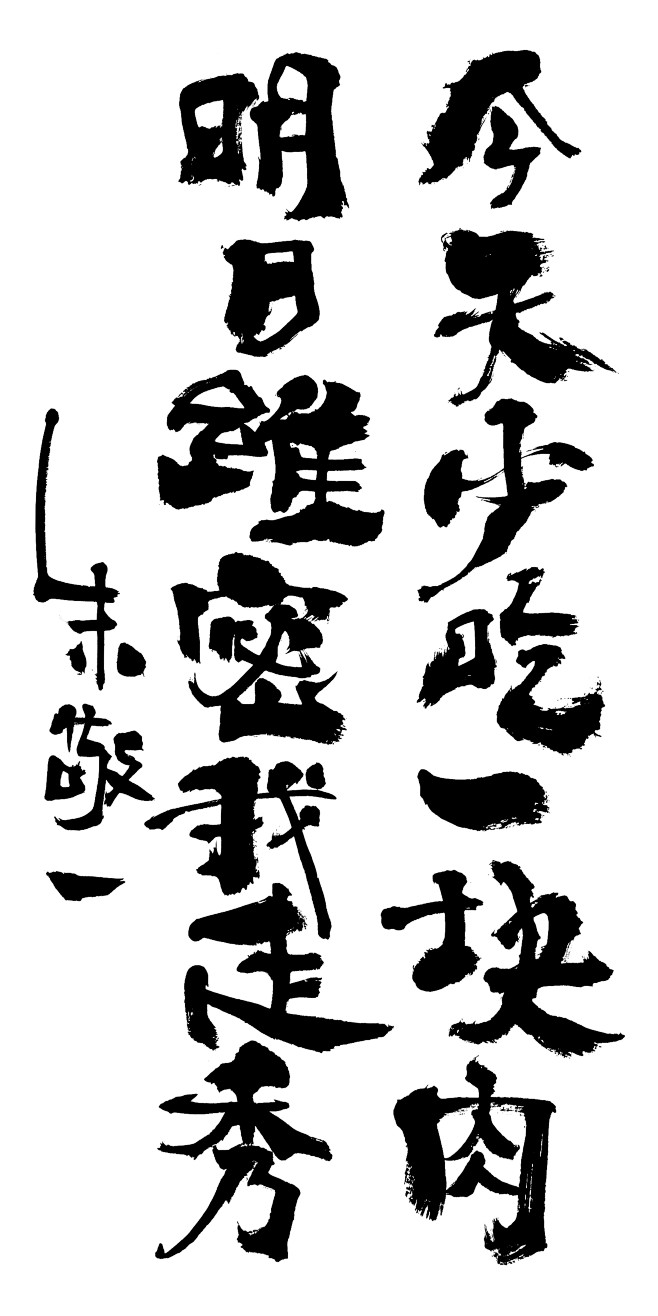 今天少吃一块肉
明日維密我走秀
朱敬一